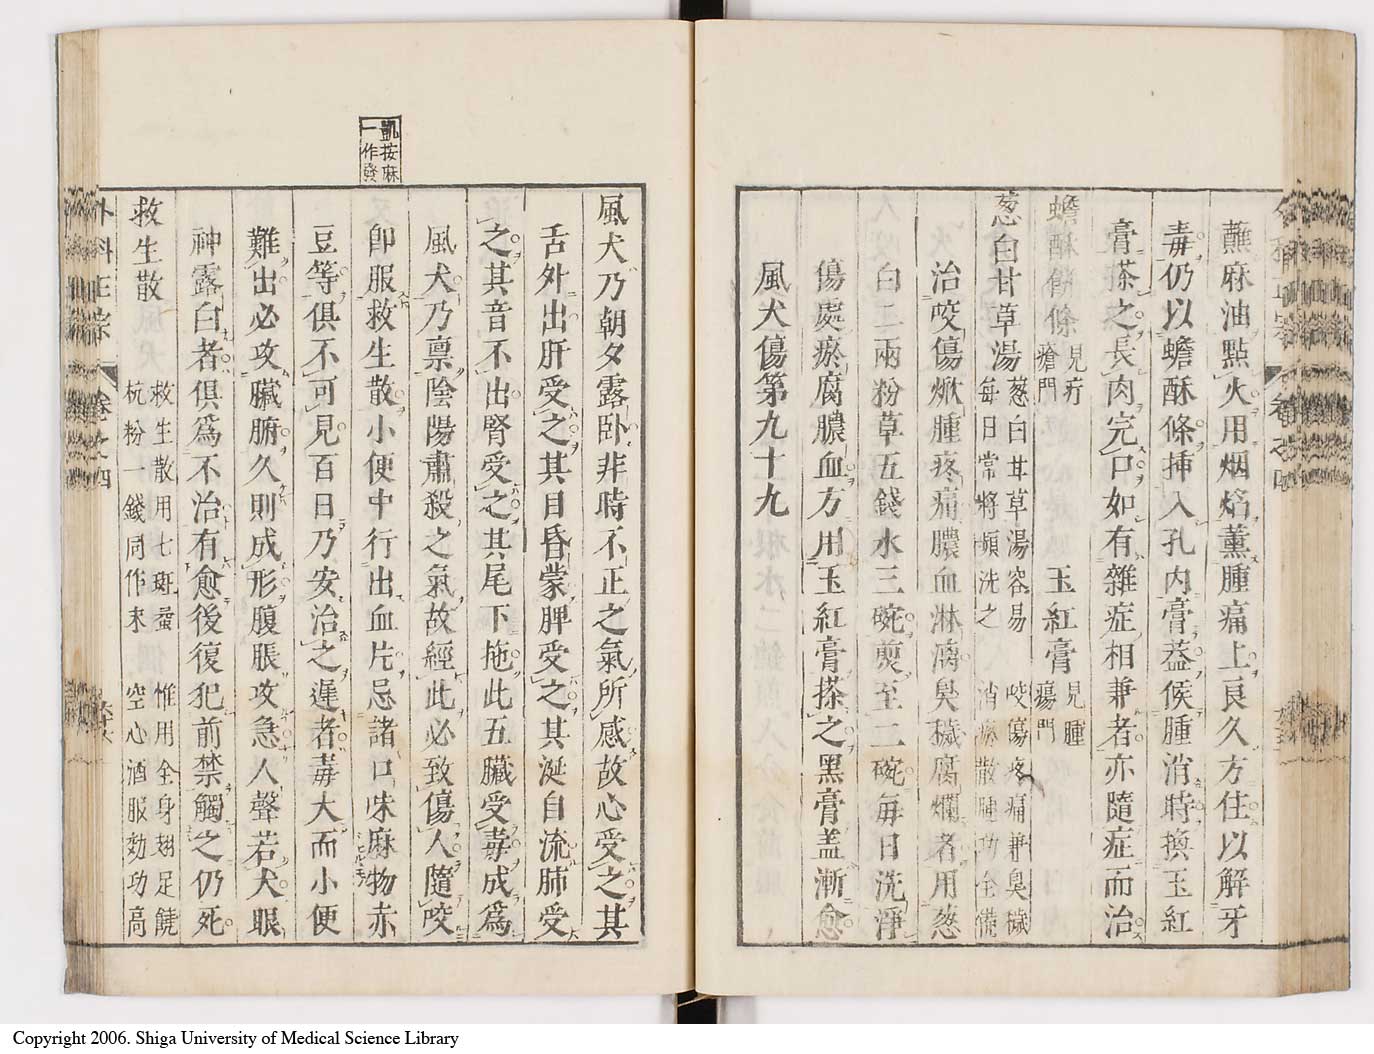 蘸麻油點火用烟焰薰腫痛上良久方住以解牙
毒仍以蟾酥條挿入孔內膏葢候腫消時換玉紅
膏搽之長肉完口如有雜症相兼者亦隨症而治
蟾酥餅條 見疔瘡門 玉紅膏 見腫瘍門
葱白甘草湯 葱白甘草湯容易 咬傷疼痛兼臭穢
每日常將頻洗之 消瘀散腫功全備
治咬傷㷔腫疼痛膿血淋漓臭穢腐爛者用葱
白二兩粉草五錢水三碗煎至二碗每日洗淨
傷處瘀腐膿血方用玉紅膏搽之黑膏盖漸愈
風犬傷第九十九
風犬乃朝夕露卧非時不正之氣所感故心受之其
舌外出肝受之其目昏蒙脾受之其涎自流肺受
之其音不出腎受之其尾下拖此五臟受毒成爲
風犬乃禀陰陽肅殺之氣故經此必致傷人隨咬
卽服救生散小便中行出血片忌諸口味麻物赤
豆等俱不可見百日乃安治之遲者毒大而小便
難出必攻臟腑久則成形腹脹攻急人聲若犬眼
神露白者俱爲不治有愈後復犯前禁觸之仍死
救生散 救生散用七斑蝥 惟用全身翅足饒
杭粉一錢同作末 空心酒服効功高
凱按麻
一作發
外科正宗 卷之四